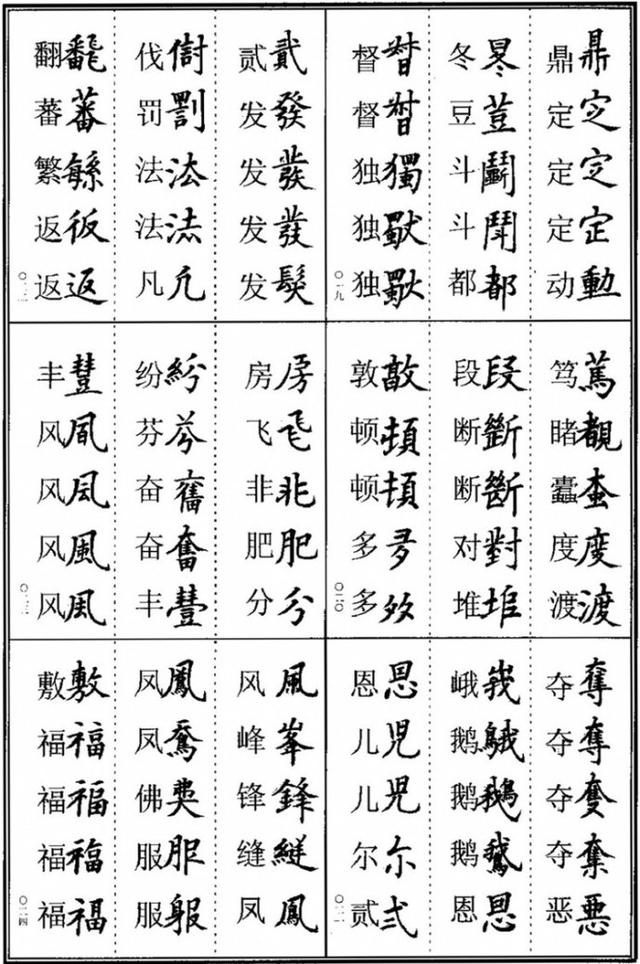 鼎 鼎
定 㝎
定 㝎
定 定
动 動
冬
豆 荳
斗 鬭
斗 鬥
都 都
督
督
独 獨
独
独
〇一九
笃 篤
睹 覩
蠹 蠧
度 度
渡 渡
段 段
断 斷
断 斷
对 對
堆
敦 敦
顿 頓
顿 頓
多 多
多
〇二〇
夺 奪
夺 奪
夺
夺
恶 悪
峨 峩
鹅 䳘
鹅 鵝
鹅 䳗
恩 恩
恩 㤙
儿 児
儿 兒
尔 尒
贰 弍
〇二一
贰 貳
发 發
发 發
发 發
发 髮
伐
罚 罰
法 法
法 法
凡 凢
翻 飜
蕃 蕃
繁 緐
返 仮
返 返
〇二二
房 房
飞 飛
非 非
肥 肥
分 分
纷 紛
芬 芬
奋 奮
奋 奮
丰 豐
丰 豐
风
风 凬
风 風
风 風
〇二三
风 風
峰 峯
锋 鋒
缝 縫
凤 鳳
凤 鳳
凤
佛
服 服
服
敷 敷
福 福
福 福
福 福
福 福
〇二四